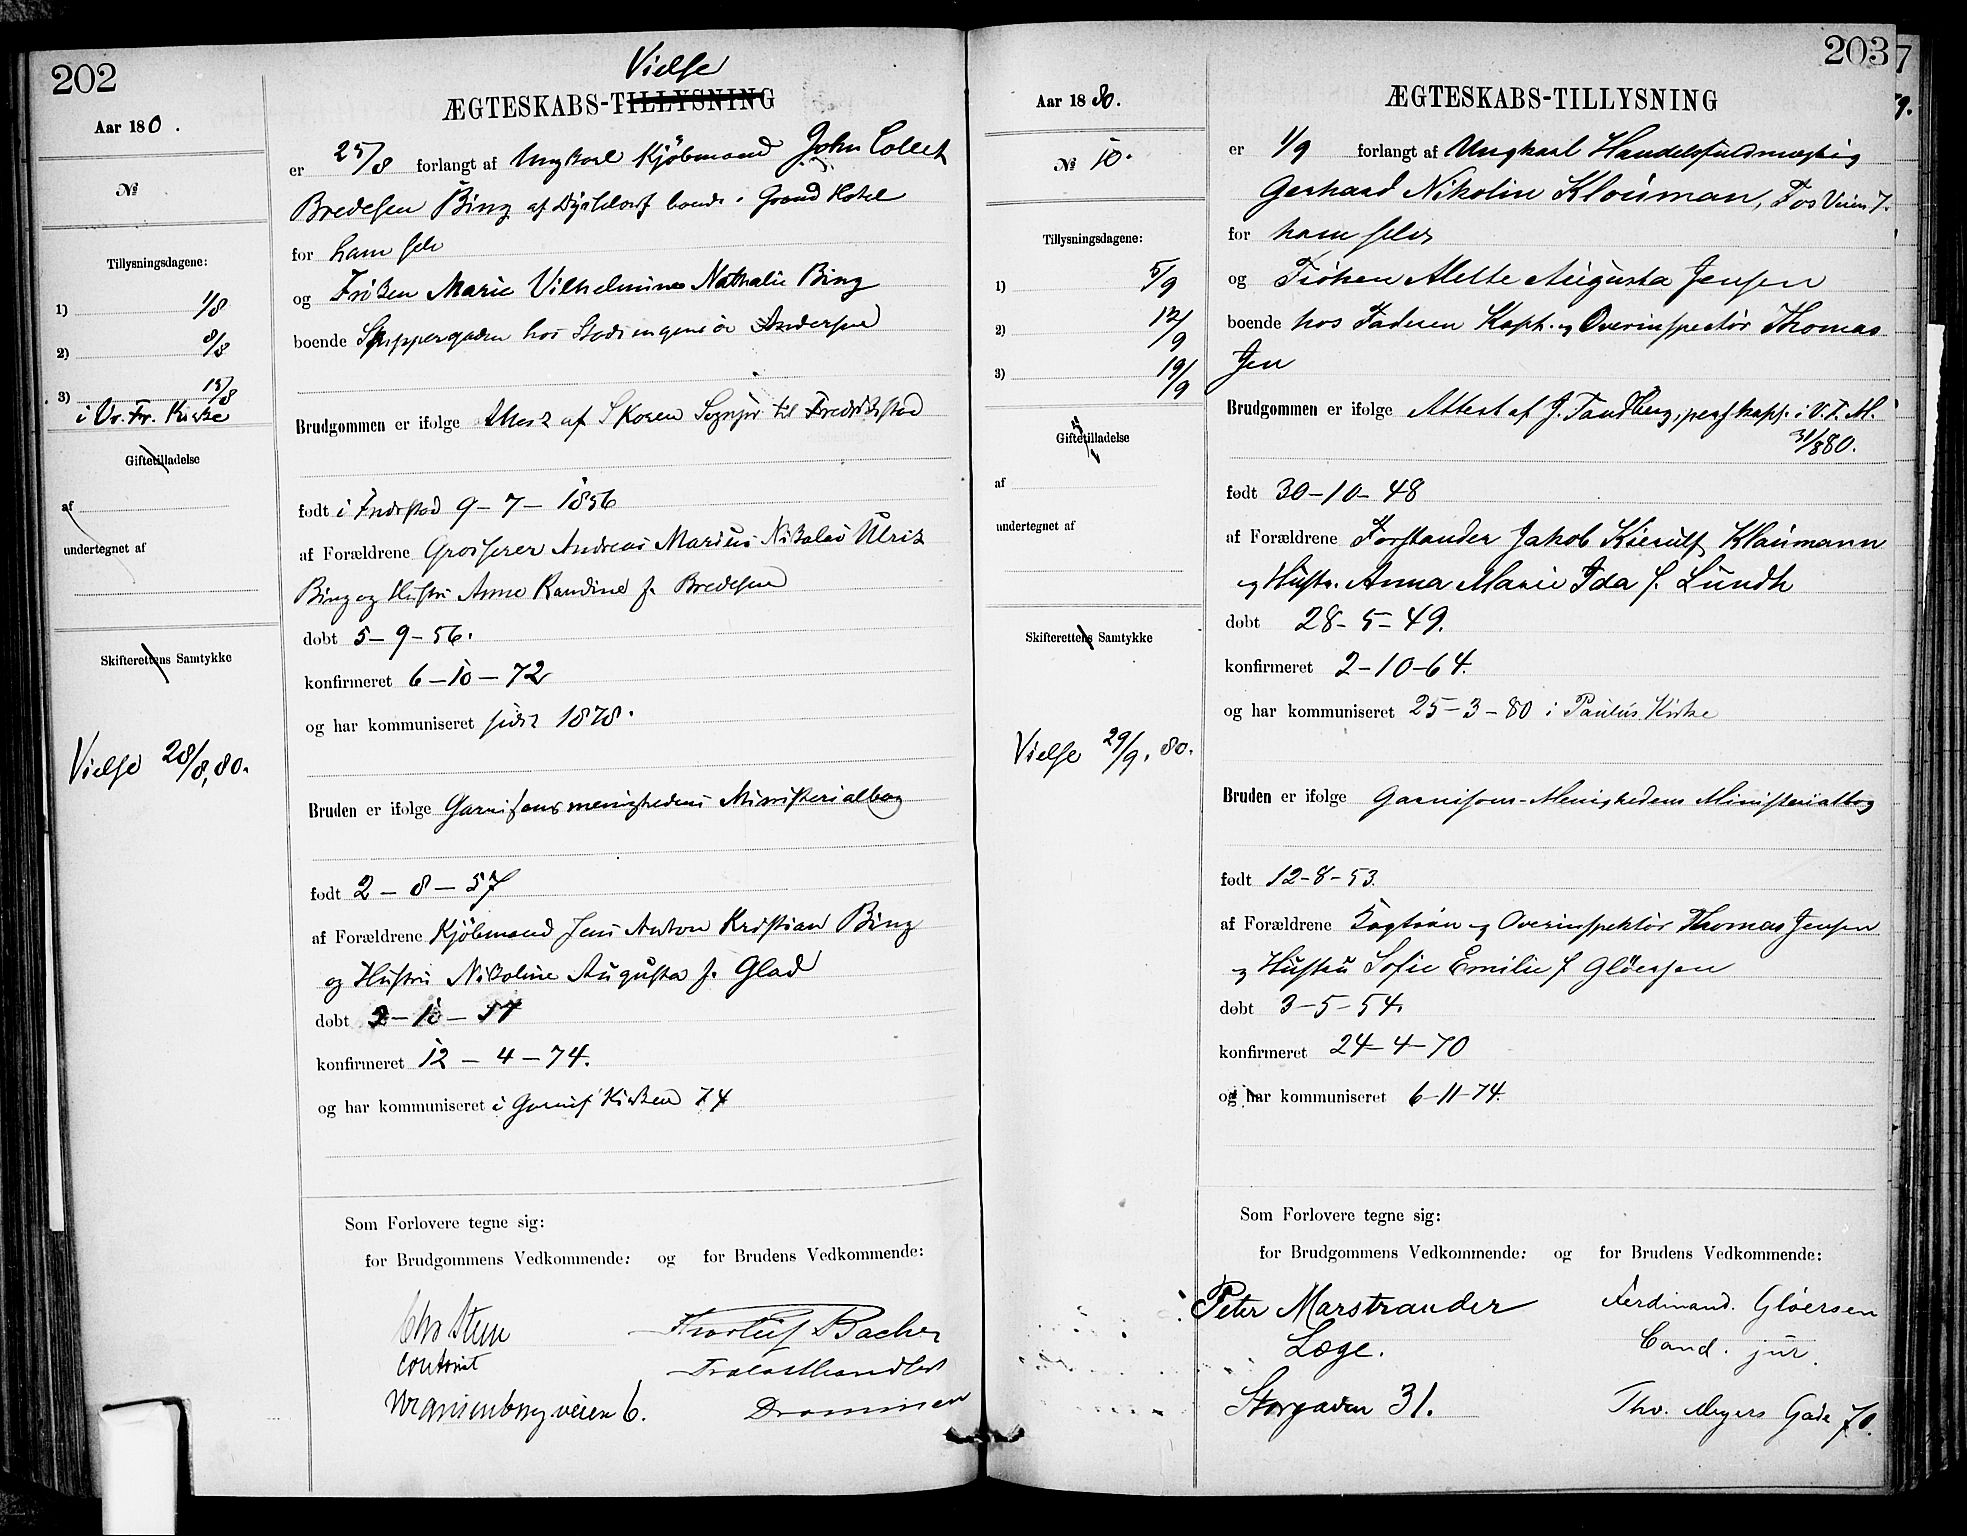 202
Aar 180.
№
Tillysningsdagene:
1) 1/8
2) 8/8
3) 15/8
i Vr. Fr. Kirke
Giftetilladelse
af
undertegnet af
Skifterettens Samtykke
Vielse 28/8, 80.
Vielse
ÆGTESKABS-TILLYSNING
er 25/8 forlangt af Ungkarl Kjöbmand John Collet
Bredesen Bing af boende i Grand Hotel
for ham selv
og Fröken Marie Vilhelmine Nathalie Bing
boende Skippergaden hos Stadsingeniör Andersen
Brudgommen er ifølge Attest af Sognepr til Fredrikstad
født i Fredrstad 9-7-1856
af Forældrene Grosserer Andreas Marius Nikolai Ulrik
Bing og Hustru Anne Kandine f. Bredesen
døbt 5-9-56.
konfirmeret 6-10-72
og har kommuniseret sidst 1878.
Bruden er ifølge Garnisonsmenighedens Ministerialbog
født 2-8-57
af Forældrene Kjöbmand Jens Anton Kristian Bing
og Hustru Nikoline Augusta f. Glad
døbt 2-10-57
konfirmeret 12-4-74.
og har kommuniseret i Garnis Kirken 74
Som Forlovere tegne sig:
for Brudgommens Vedkommende: og for Brudens Vedkommende:
Chr Steen Thorluf Bacher
Contorist Trælasthandler
Uranienborgveien 6. Drammen
203
Aar 1880.
№ 10.
Tillysningsdagene:
1) 5/9
2) 12/9
3) 19/9
Giftetilladelse
af
undertegnet af
Skifterettens Samtykke
Vielse 29/9. 80.
ÆGTESKABS-TILLYSNING
er 1/9 forlangt af Ungkarl Handelsfuldmægtig
Gerhard Nikolin Klouman, Fos Veien 7.
for ham selv
og Fröken Alette Augusta Jensen
boende hos Faderen Kapt. og Overinspectör Thomas
Jen
Brudgommen er ifølge Attest af J. Tandberg, pers. kap. i V. F. M.
31/880.
født 30-10-48
af Forældrene Forstander Jakob Kierulf Klaumann
og Hustr. Anna Marie Ida f. Lundh
døbt 28-5-49.
konfirmeret 2-10-64.
og har kommuniseret 25-3-80 i Paulus Kirke
Bruden er ifølge Garnisons-Menighedens Ministerialbog
født 12-8-53.
af Forældrene Kaptein og Overinspektör Thomas Jensen
og Hustru Sofie Emilie f Glöersen
døbt 3-5-54.
konfirmeret 24-4-70
og har kommuniseret 6-11-74.
Som Forlovere tegne sig:
for Brudgommens Vedkommende: og for Brudens Vedkommende:
Peter Marstrander Ferdinand. Glöersen
Læge. Cand. jur.
Storgaden 31. Thv. Meyers Gade 70.